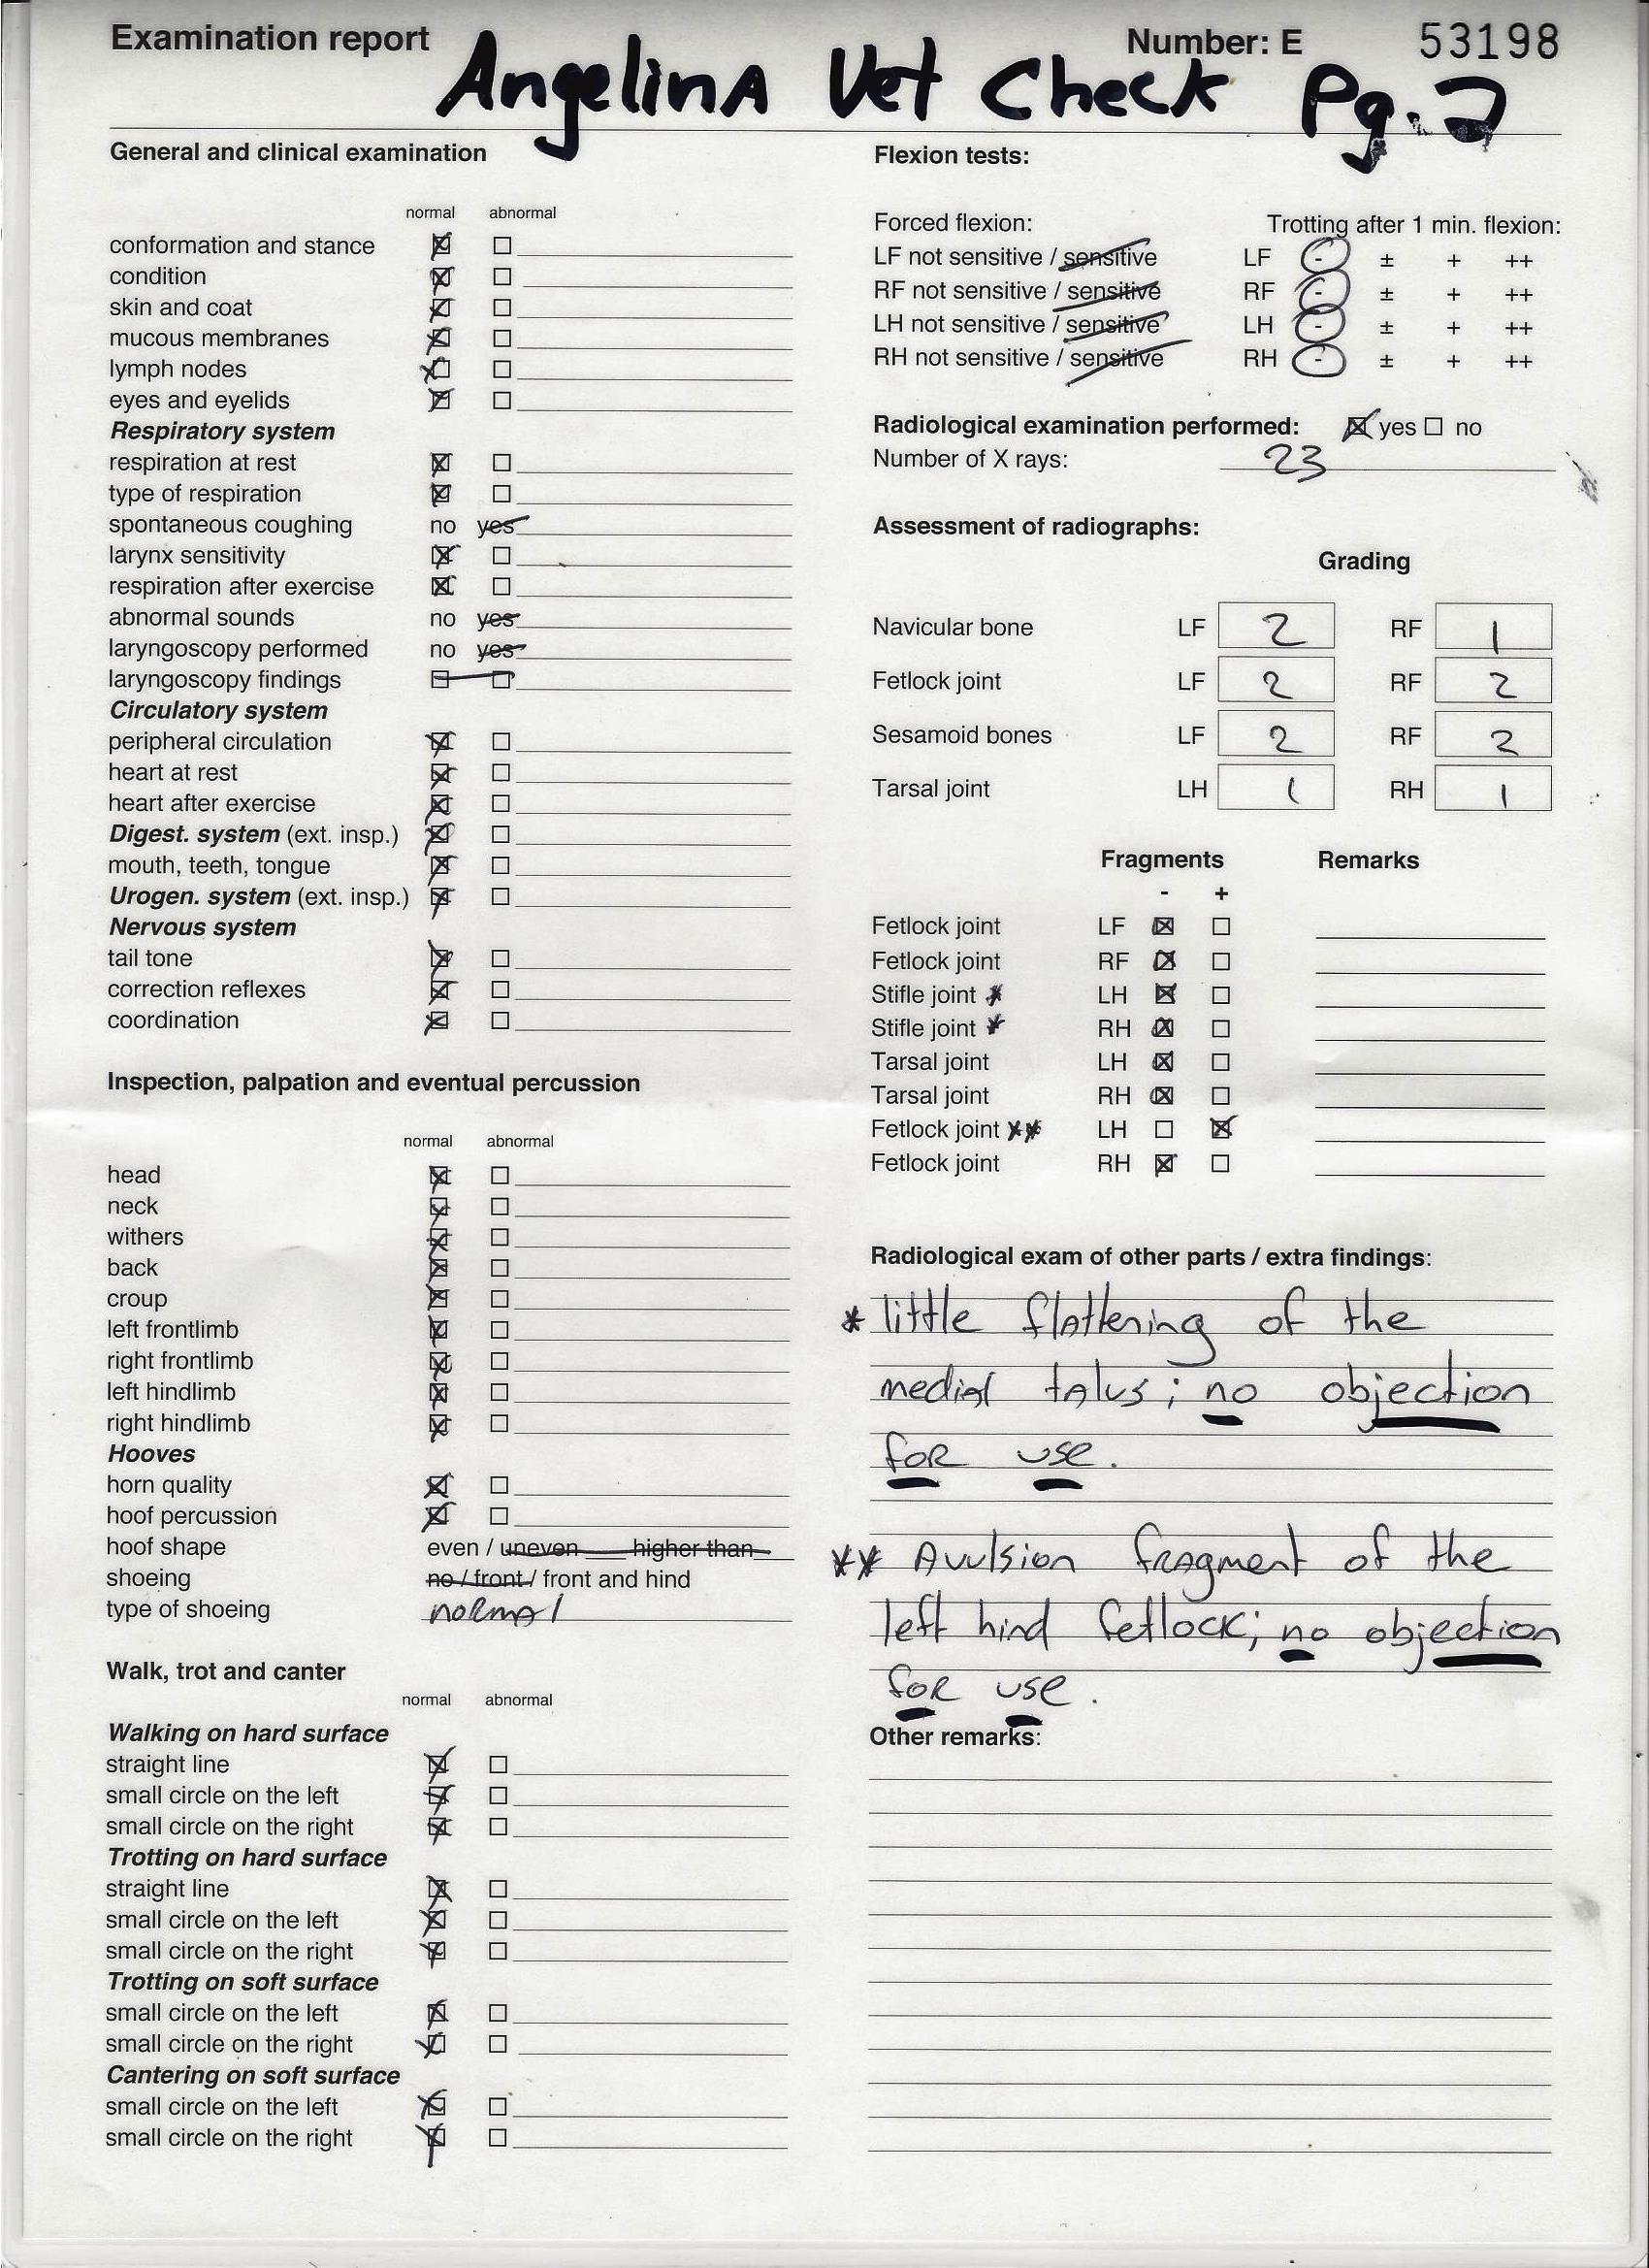 Examination report
Number: E 53198
Angelina Vet Check Pg. 2
General and clinical examination
normal abnormal
conformation and stance
condition
skin and coat
mucous membranes
lymph nodes
eyes and eyelids
Respiratory system
respiration at rest
type of respiration
spontaneous coughing no yes
larynx sensitivity
respiration after exercise
abnormal sounds no yes
laryngoscopy performed no yes
laryngoscopy findings
Circulatory system
peripheral circulation
heart at rest
heart after exercise
Digest. system (ext. insp.)
mouth, teeth, tongue
Urogen. system (ext. insp.)
Nervous system
tail tone
correction reflexes
coordination
Inspection, palpation and eventual percussion
normal abnormal
head
neck
withers
back
croup
left frontlimb
right frontlimb
left hindlimb
right hindlimb
Hooves
horn quality
hoof percussion
hoof shape even / uneven ___ higher than ___
shoeing no / front / front and hind
type of shoeing normal
Walk, trot and canter
normal abnormal
Walking on hard surface
straight line
small circle on the left
small circle on the right
Trotting on hard surface
straight line
small circle on the left
small circle on the right
Trotting on soft surface
small circle on the left
small circle on the right
Cantering on soft surface
small circle on the left
small circle on the right
Flexion tests:
Forced flexion: Trotting after 1 min. flexion:
LF not sensitive / sensitive LF - ± + ++
RF not sensitive / sensitive RF - ± + ++
LH not sensitive / sensitive LH - ± + ++
RH not sensitive / sensitive RH - ± + ++
Radiological examination performed: yes no
Number of X rays: 23
Assessment of radiographs:
Grading
Navicular bone LF 2 RF 1
Fetlock joint LF 2 RF 2
Sesamoid bones LF 2 RF 2
Tarsal joint LH 1 RH 1
Fragments Remarks
- +
Fetlock joint LF
Fetlock joint RF
Stifle joint * LH
Stifle joint * RH
Tarsal joint LH
Tarsal joint RH
Fetlock joint ** LH
Fetlock joint RH
Radiological exam of other parts / extra findings:
* little flattening of the
medial talus; no objection
for use.
** Avulsion fragment of the
left hind fetlock; no objection
for use.
Other remarks: